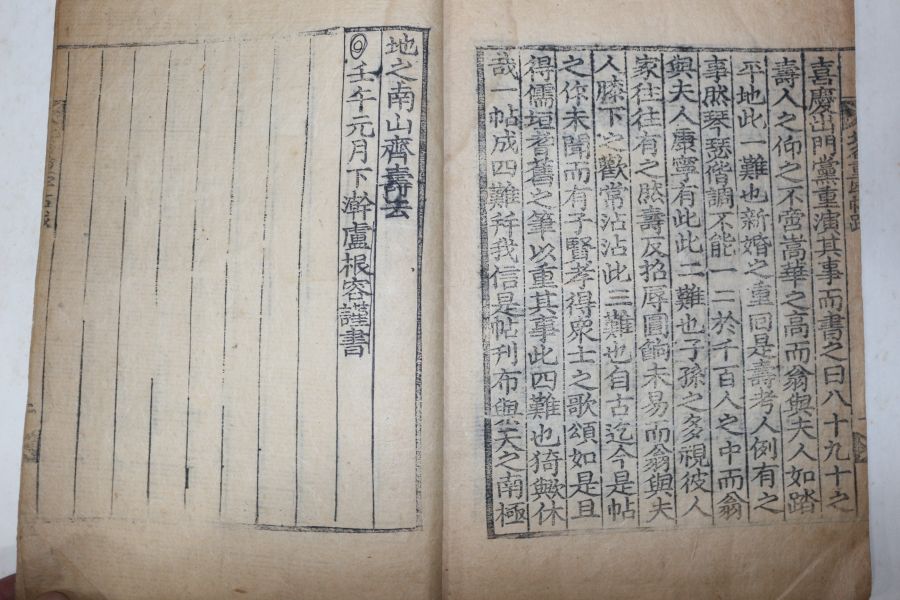 喜慶出門黨重演其事而書之曰八十九十之
壽人之仰之不啻高華之高而翁與夫人如踏
平地此一難也新婚之重回是壽考人例有之
事然琴瑟偕調不能一二於千百人之中而翁
與夫人康寧有此此二難也子孫之多視彼人
家往往有之然壽反招辱圓餉未易而翁與夫
人膝下之歡常沾沾此三難也自古迄今是帖
之作未聞而有子賢孝得衆士之歌頌如是且
得儒垣耆舊之筆以重其事此四難也猗歟休
哉一帖成四難幷我信是帖刋布與天之南極
地之南山齊壽去
◎壬午元月下澣盧根容謹書